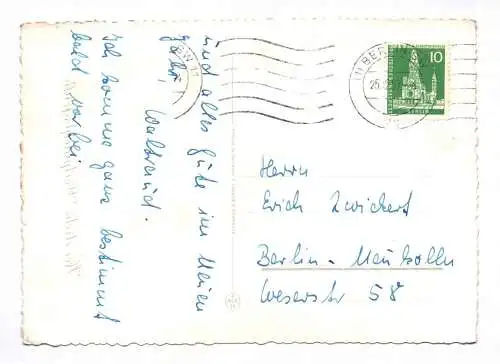 und alles Gute im Neuen
Jahr,
Waltraud.
Ich komme ganz bestimmt
bald vorbei
Herrn
Erich Zwickert
Berlin-Neukölln
Weserstr 58
10
BERLIN
25